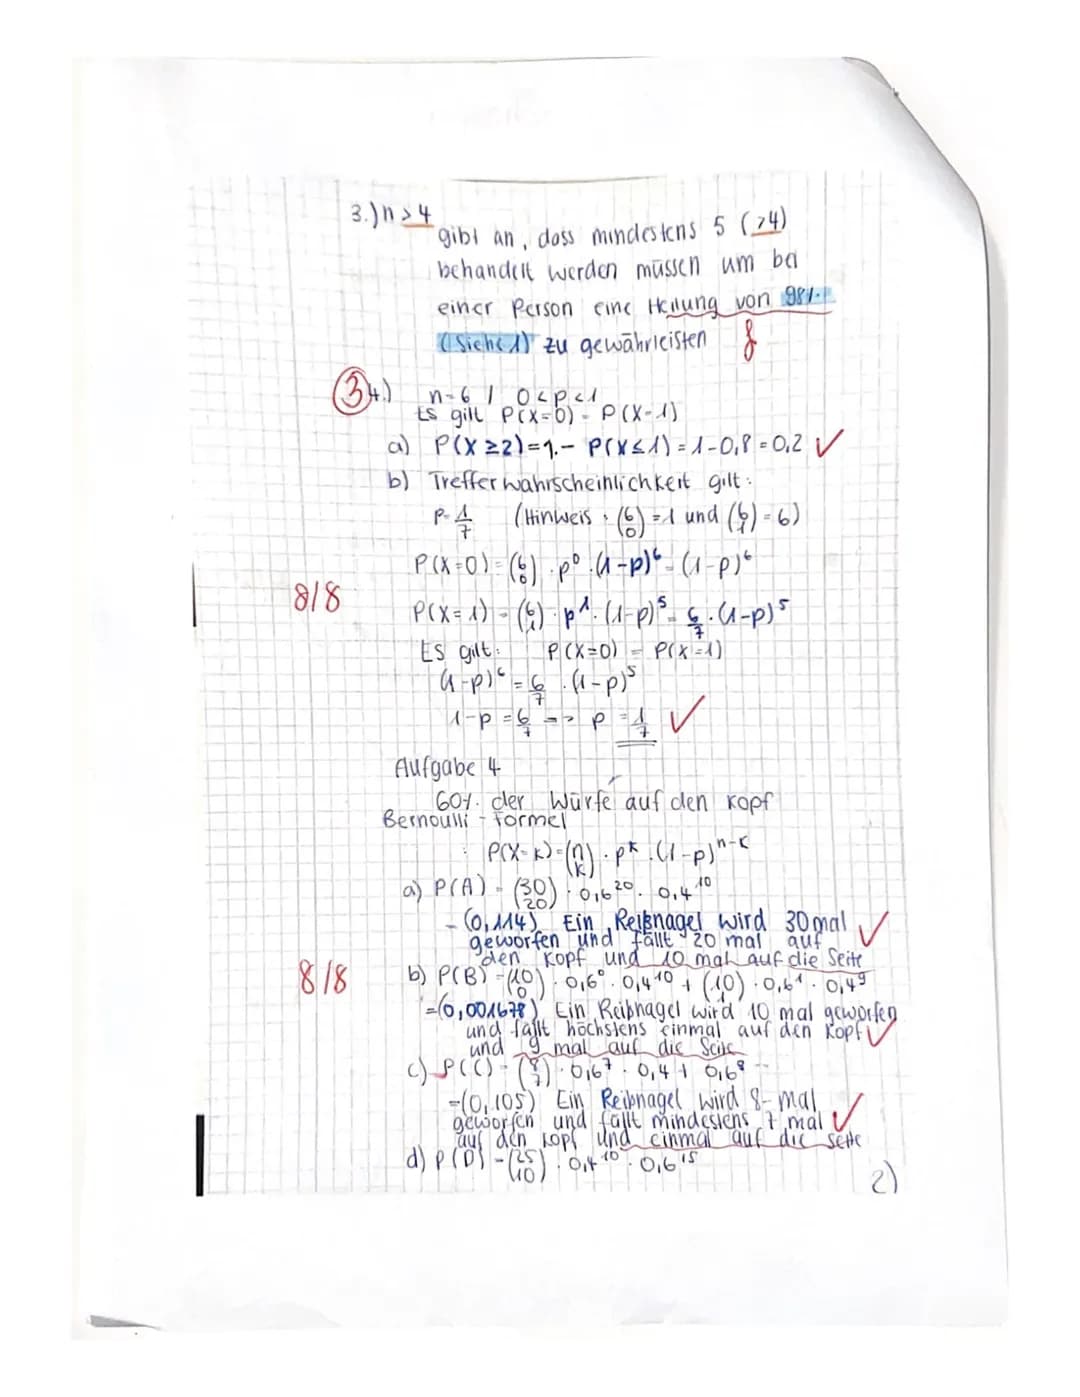 3.) n > 4
gibt an, dass mindestens 5 (>4)
behandelt werden müssen um bei
einer Person eine Heilung von 98%
(Siehe 1) zu gewährleisten f
3 4.) n=6 / 0<p<1
Es gilt P(X=0) = P(X=1)
a) P(X≥2)=1- P(X≤1) = 1-0,8 = 0,2 ✓
b) Trefferwahrscheinlichkeit gilt:
p=1/7 (Hinweis: (6 0) = 1 und (6 1) = 6)
P(X=0) = (6 0) · p⁰ · (1-p)⁶ = (1-p)⁶
8/8
P(X=1) = (6 1) · p¹ · (1-p)⁵ = 6/7 · (1-p)⁵
Es gilt: P(X=0) = P(X=1)
(1-p)⁶ = 6/7 · (1-p)⁵
1-p = 6/7 => p = 1/7 ✓
Aufgabe 4
60% der Würfe auf den Kopf
Bernoulli-Formel
: P(X=k) = (n k) · pᵏ · (1-p)ⁿ⁻ᵏ
a) P(A) = (30 20) · 0,6²⁰ · 0,4¹⁰
= (0,114) Ein Reißnagel wird 30 mal ✓
geworfen und fällt 20 mal auf
den Kopf und 10 mal auf die Seite
8/8
b) P(B) = (10 0) · 0,6⁰ · 0,4¹⁰ + (10 1) · 0,6¹ · 0,4⁹
= (0,001678) Ein Reißnagel wird 10 mal geworfen
und fällt höchstens einmal auf den Kopf ✓
und 9 mal auf die Seite
c) P(C) = (8 7) · 0,6⁷ · 0,4 + 0,6⁸
= (0,105) Ein Reißnagel wird 8-mal
geworfen und fällt mindestens 7 mal ✓
auf den Kopf und einmal auf die Seite
d) P(D) = (25 10) · 0,4¹⁰ · 0,6¹⁵
2)